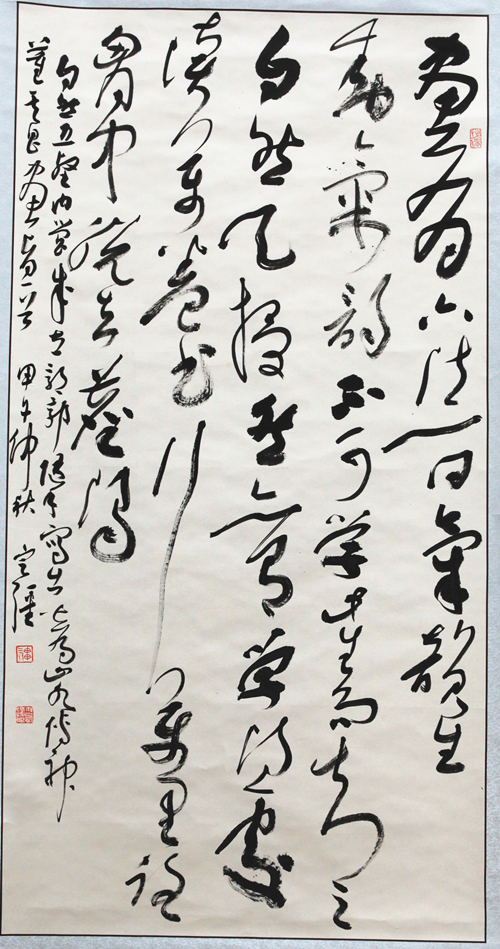 畫家六法一曰氣韻生
動氣韻不可学此生而知之
自然天授然亦有学得處
讀万卷書行万里路
胸中脱去塵濁
自然丘壑内営成立鄞鄂随手寫出皆為山水傳神
董其昌畫旨一 甲午仲秋